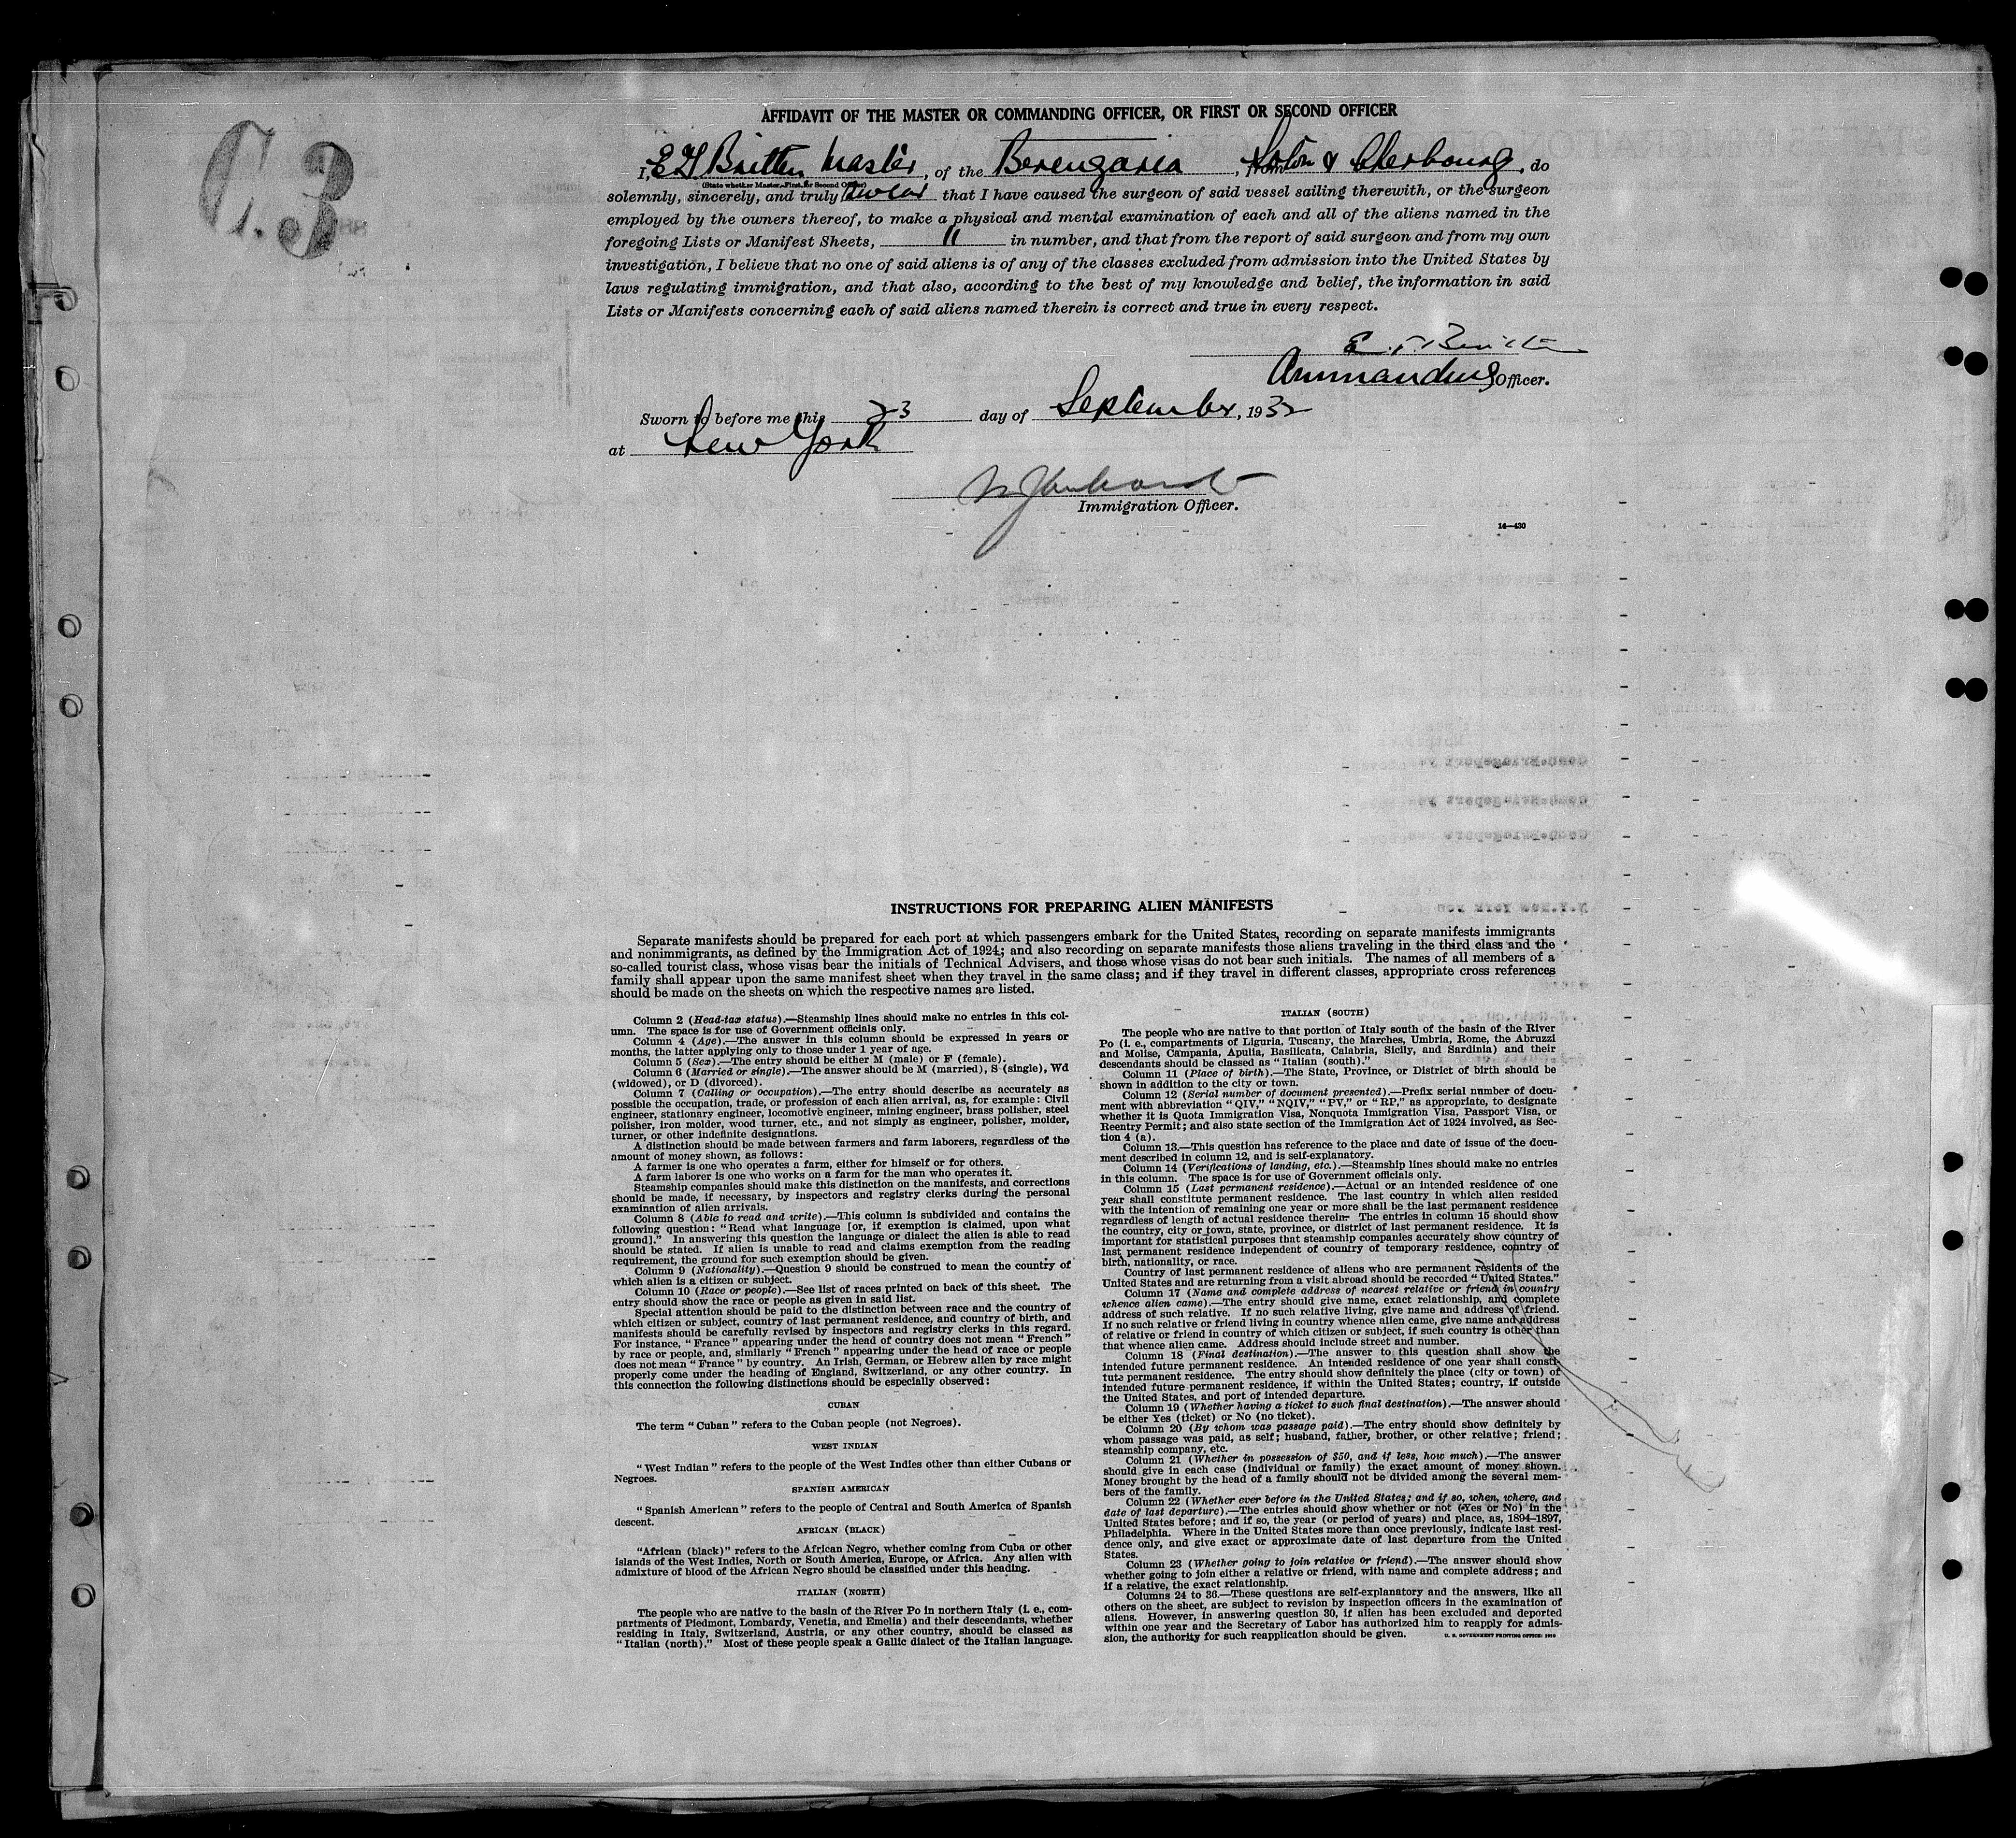 C.3
AFFIDAVIT OF THE MASTER OR COMMANDING OFFICER, OR FIRST OR SECOND OFFICER
I, E T Britten Master, of the Berengaria, from Soton & Cherbourg, do
(State whether Master, First, or Second Officer)
solemnly, sincerely, and truly swear that I have caused the surgeon of said vessel sailing therewith, or the surgeon
employed by the owners thereof, to make a physical and mental examination of each and all of the aliens named in the
foregoing Lists or Manifest Sheets, 11 in number, and that from the report of said surgeon and from my own
investigation, I believe that no one of said aliens is of any of the classes excluded from admission into the United States by
laws regulating immigration, and that also, according to the best of my knowledge and belief, the information in said
Lists or Manifests concerning each of said aliens named therein is correct and true in every respect.
E. T. Britten
Commanding Officer.
Sworn to before me this 23 day of September, 1932
at New York
Immigration Officer.
14—430
INSTRUCTIONS FOR PREPARING ALIEN MANIFESTS
Separate manifests should be prepared for each port at which passengers embark for the United States, recording on separate manifests immigrants
and nonimmigrants, as defined by the Immigration Act of 1924; and also recording on separate manifests those aliens traveling in the third class and the
so-called tourist class, whose visas bear the initials of Technical Advisers, and those whose visas do not bear such initials. The names of all members of a
family shall appear upon the same manifest sheet when they travel in the same class; and if they travel in different classes, appropriate cross references
should be made on the sheets on which the respective names are listed.
Column 2 (Head-tax status).—Steamship lines should make no entries in this col-
umn. The space is for use of Government officials only.
Column 4 (Age).—The answer in this column should be expressed in years or
months, the latter applying only to those under 1 year of age.
Column 5 (Sex).—The entry should be either M (male) or F (female).
Column 6 (Married or single).—The answer should be M (married), S (single), Wd
(widowed), or D (divorced).
Column 7 (Calling or occupation).—The entry should describe as accurately as
possible the occupation, trade, or profession of each alien arrival, as, for example: Civil
engineer, stationary engineer, locomotive engineer, mining engineer, brass polisher, steel
polisher, iron molder, wood turner, etc., and not simply as engineer, polisher, molder,
turner, or other indefinite designations.
A distinction should be made between farmers and farm laborers, regardless of the
amount of money shown, as follows:
A farmer is one who operates a farm, either for himself or for others.
A farm laborer is one who works on a farm for the man who operates it.
Steamship companies should make this distinction on the manifests, and corrections
should be made, if necessary, by inspectors and registry clerks during the personal
examination of alien arrivals.
Column 8 (Able to read and write).—This column is subdivided and contains the
following question: "Read what language [or, if exemption is claimed, upon what
ground]." In answering this question the language or dialect the alien is able to read
should be stated. If alien is unable to read and claims exemption from the reading
requirement, the ground for such exemption should be given.
Column 9 (Nationality).—Question 9 should be construed to mean the country of
which alien is a citizen or subject.
Column 10 (Race or people).—See list of races printed on back of this sheet. The
entry should show the race or people as given in said list.
Special attention should be paid to the distinction between race and the country of
which citizen or subject, country of last permanent residence, and country of birth, and
manifests should be carefully revised by inspectors and registry clerks in this regard.
For instance, "France" appearing under the head of country does not mean "French"
by race or people, and, similarly "French" appearing under the head of race or people
does not mean "France" by country. An Irish, German, or Hebrew alien by race might
properly come under the heading of England, Switzerland, or any other country. In
this connection the following distinctions should be especially observed:
CUBAN
The term "Cuban" refers to the Cuban people (not Negroes).
WEST INDIAN
"West Indian" refers to the people of the West Indies other than either Cubans or
Negroes.
SPANISH AMERICAN
"Spanish American" refers to the people of Central and South America of Spanish
descent.
AFRICAN (BLACK)
"African (black)" refers to the African Negro, whether coming from Cuba or other
islands of the West Indies, North or South America, Europe, or Africa. Any alien with
admixture of blood of the African Negro should be classified under this heading.
ITALIAN (NORTH)
The people who are native to the basin of the River Po in northern Italy (i. e., com-
partments of Piedmont, Lombardy, Venetia, and Emelia) and their descendants, whether
residing in Italy, Switzerland, Austria, or any other country, should be classed as
"Italian (north)." Most of these people speak a Gallic dialect of the Italian language.
ITALIAN (SOUTH)
The people who are native to that portion of Italy south of the basin of the River
Po (i. e., compartments of Liguria, Tuscany, the Marches, Umbria, Rome, the Abruzzi
and Molise, Campania, Apulia, Basilicata, Calabria, Sicily, and Sardinia) and their
descendants should be classed as "Italian (south)."
Column 11 (Place of birth).—The State, Province, or District of birth should be
shown in addition to the city or town.
Column 12 (Serial number of document presented).—Prefix serial number of docu-
ment with abbreviation "QIV," "NQIV," "PV," or "RP," as appropriate, to designate
whether it is Quota Immigration Visa, Nonquota Immigration Visa, Passport Visa, or
Reentry Permit; and also state section of the Immigration Act of 1924 involved, as Sec-
tion 4 (a).
Column 13.—This question has reference to the place and date of issue of the docu-
ment described in column 12, and is self-explanatory.
Column 14 (Verifications of landing, etc.).—Steamship lines should make no entries
in this column. The space is for use of Government officials only.
Column 15 (Last permanent residence).—Actual or an intended residence of one
year shall constitute permanent residence. The last country in which alien resided
with the intention of remaining one year or more shall be the last permanent residence
regardless of length of actual residence therein. The entries in column 15 should show
the country, city or town, state, province, or district of last permanent residence. It is
important for statistical purposes that steamship companies accurately show country of
last permanent residence independent of country of temporary residence, country of
birth, nationality, or race.
Country of last permanent residence of aliens who are permanent residents of the
United States and are returning from a visit abroad should be recorded "United States."
Column 17 (Name and complete address of nearest relative or friend in country
whence alien came).—The entry should give name, exact relationship, and complete
address of such relative. If no such relative living, give name and address of friend.
If no such relative or friend living in country whence alien came, give name and address
of relative or friend in country of which citizen or subject, if such country is other than
that whence alien came. Address should include street and number.
Column 18 (Final destination).—The answer to this question shall show the
intended future permanent residence. An intended residence of one year shall consti-
tute permanent residence. The entry should show definitely the place (city or town) of
intended future permanent residence, if within the United States; country, if outside
the United States, and port of intended departure.
Column 19 (Whether having a ticket to such final destination).—The answer should
be either Yes (ticket) or No (no ticket).
Column 20 (By whom was passage paid).—The entry should show definitely by
whom passage was paid, as self; husband, father, brother, or other relative; friend;
steamship company, etc.
Column 21 (Whether in possession of $50, and if less, how much).—The answer
should give in each case (individual or family) the exact amount of money shown.
Money brought by the head of a family should not be divided among the several mem-
bers of the family.
Column 22 (Whether ever before in the United States; and if so, when, where, and
date of last departure).—The entries should show whether or not (Yes or No) in the
United States before; and if so, the year (or period of years) and place, as, 1894–1897,
Philadelphia. Where in the United States more than once previously, indicate last resi-
dence only, and give exact or approximate date of last departure from the United
States.
Column 23 (Whether going to join relative or friend).—The answer should show
whether going to join either a relative or friend, with name and complete address; and
if a relative, the exact relationship.
Columns 24 to 36.—These questions are self-explanatory and the answers, like all
others on the sheet, are subject to revision by inspection officers in the examination of
aliens. However, in answering question 30, if alien has been excluded and deported
within one year and the Secretary of Labor has authorized him to reapply for admis-
sion, the authority for such reapplication should be given.
U. S. GOVERNMENT PRINTING OFFICE: